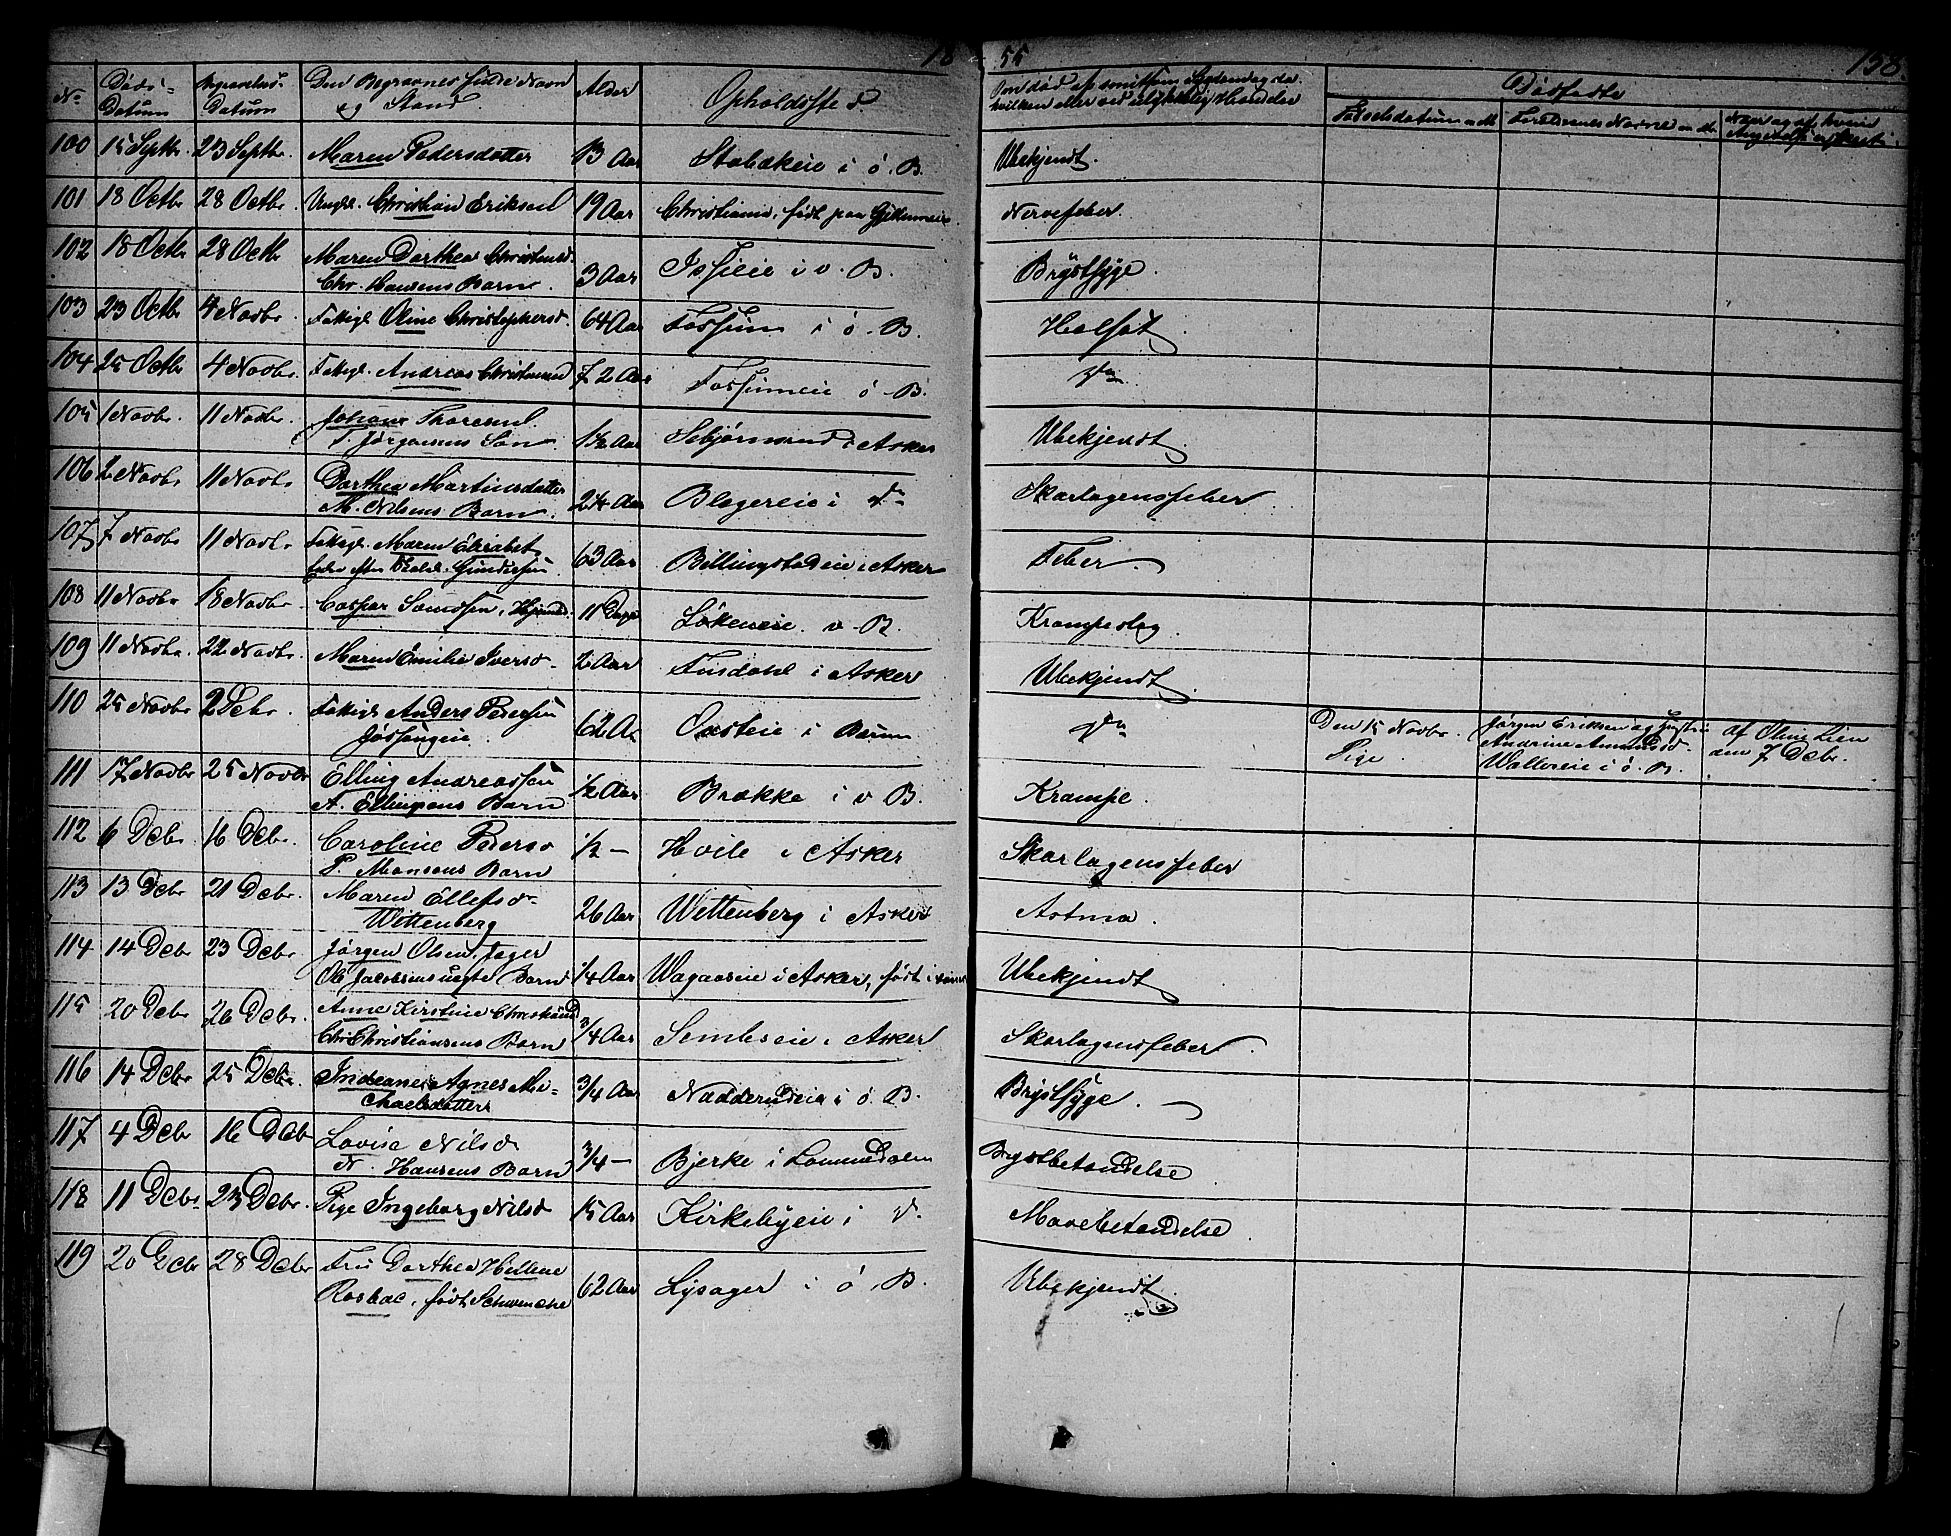 18 55 158
No Döds-Datum Begravelses-Datum Den Begravnes fulde Navn og Stand Alder Opholdssted Om död af smitsom Sygdom og da hvilken eller ved ulykkelig Hændelse Dödfødte
Födselsdatum Forældrenes Navne Naar og af hvem
100 15 Septbr 23 Septbr. Maren Pedersdatter 13 Aar Stabækeie i ö. B. Ubekjendt.
101 18 Octbr 28 Octbr. Ungk. Christian Eriksen 19 Aar Christiania, födt paa Nervefeber.
102 18 Octbr 28 Octbr Maren Dorthea Christensd.
Chr. Hansens Barn. 3 Aar Isieie i v. B. Brystsyge.
103 23 Octbr 4 Novbr. Fattigl. Oline Christophersd. 64 Aar Fossum i ö. B. Halsot
104 25 Octbr 4 Novbr. Fattigl. Andreas 72 Aar Fossumeie ö B. do
105 1 Novbr. 11 Novbr. Johan Thoresen
T. Jörgensens Sön 1½ Aar i Asker Ubekjendt
106 2 Novbr 11 Novbr Dorthea Martinsdatter
M. Nilsens Barn. 2¼ Aar i do Skarlagensfeber
107 7 Novbr 11 Novbr Fattigl. Maren Elisabet
Enke efter Gundersen 63 Aar Billingstadeie i Asker Feber.
108 11 Novbr 18 Novbr. Caspar 11 Dage Lökeneie v. B. Krampeslag
109 11 Novbr. 22 Novbr. Maren Emilie Iversd. 2 Aar Fusdahl i Asker Ubekjendt
110 25 Novbr 2 Dcbr. Fattigl. Anders Pedersen
62 Aar i Bærum do Den 15 Novbr. Jörgen Eriksen og
af Oline Lien
Pige Andrine
den 7 Dcbr.
i ö. B.
111 17 Novbr 25 Novbr Elling Andreassen
A. Ellingsens Barn ½ Aar Brække i v B. Krampe.
112 6 Dcbr 16 Dcbr. Caroline Pedersd
P. Monsens Barn ½ — Hvile i Asker Skarlagensfeber
113 13 Dcbr 21 Dcbr. Maren Ellefsd.
Wettenberg 26 Aar Wettenberg i Asker Astma.
114 14 Dcbr 23 Dcbr Jörgen Olsen,
Ole Jacobsens uegte Barn ¼ Aar i Asker, födt i Ubekjendt
115 20 Dcbr 26 Dcbr. Anne Kirstine
Chr. Christiansens Barn ¾ Aar Semseie i Asker Skarlagensfeber.
116 14 Dcbr 25 Dcbr. Indeane Agnes Mi-
chaelsdatter ¾ Aar Nadderudeie i ö. B. Brystsyge. —
117 4 Dcbr 16 Dcbr Lovise Nilsd
N. Hansens Barn ¾ — Bjerke i Lommedalen Brystbetændelse
118 11 Dcbr. 23 Dcbr. Pige Ingeborg Nilsd 15 Aar Kirkebyeie i do Mavebetændelse.
119 20 Dcbr 28 Dcbr Fru Dorthea Hellene
Rosbac, födt Schwencke 62 Aar Lysager i ö B. Ubekjendt.